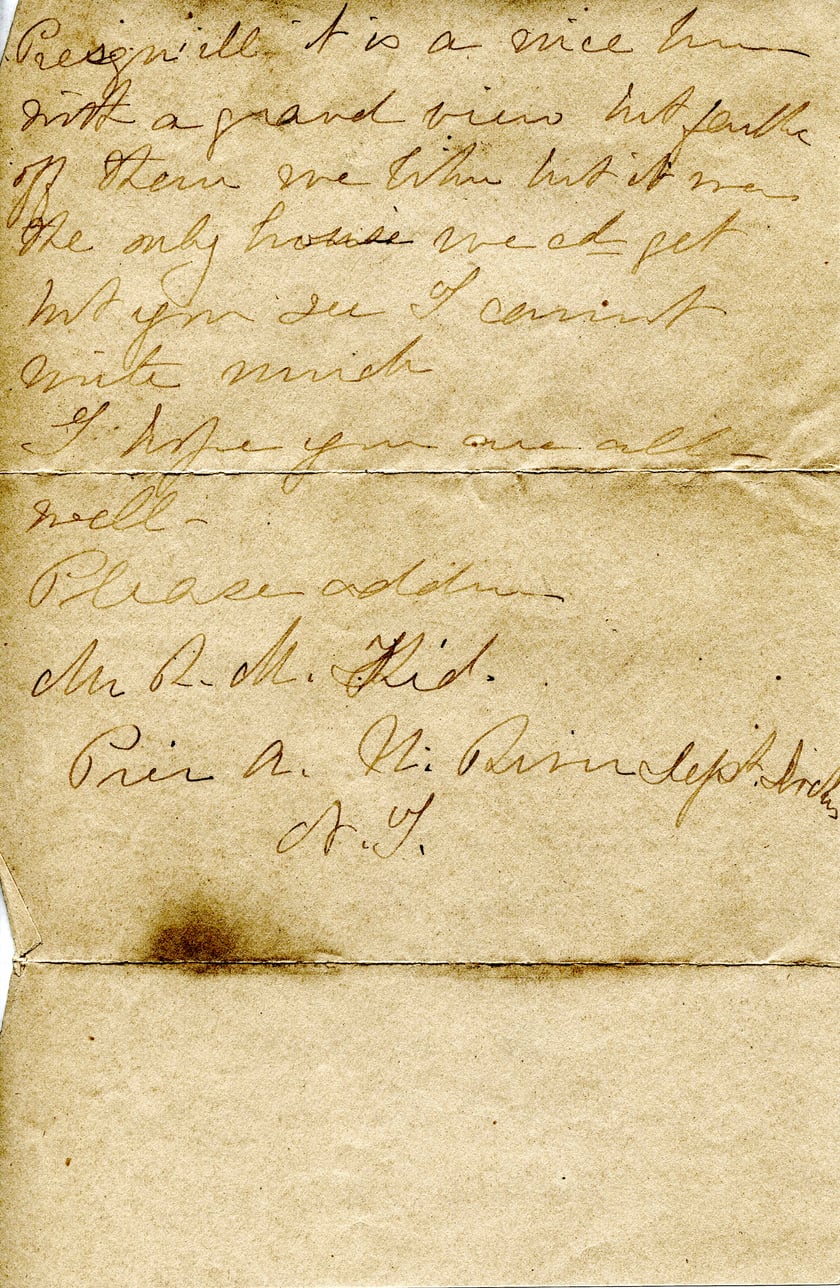 it is a nice home
with a grand view but farther
off than we like but it was
the only house we cd get
but you see I cannot
write much
I hope you are all -
well -
Please address
Mr R. M. Kid.
Pier A. N. River Dept. Docks
N.Y.